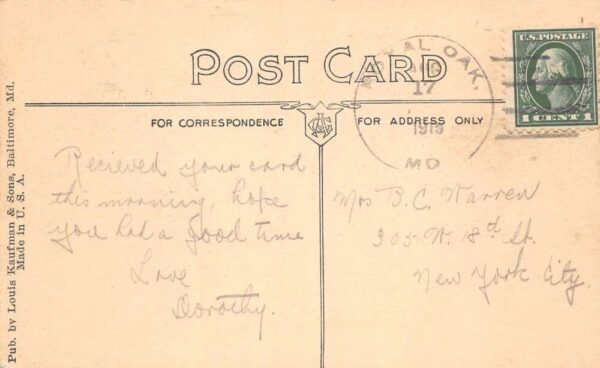 POST CARD
ROYAL OAK.
17
1919
MD
U.S. POSTAGE
1 CENT 1
FOR CORRESPONDENCE
FOR ADDRESS ONLY
Recieved your card
this morning, hope
you had a good time
Love
Dorothy.
Mrs B.C. Warren
305 W. 18th St.
New York City.
Pub. by Louis Kaufman & Sons, Baltimore, Md.
Made in U. S. A.